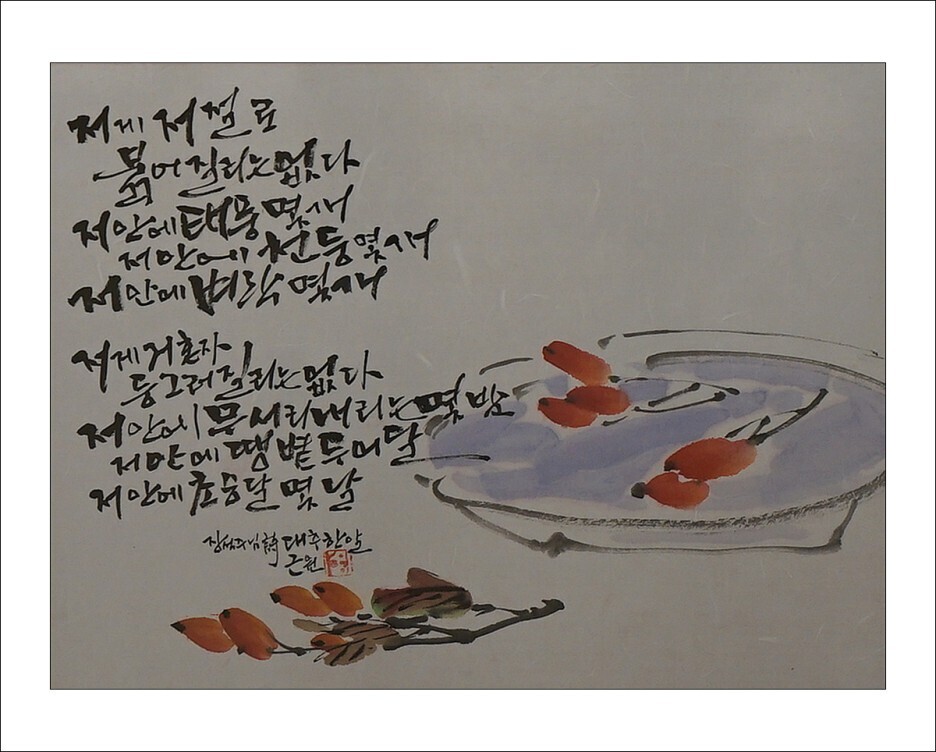 저게 저절로
붉어 질리는 없다
저 안에 태풍 몇 개
저 안에 천둥 몇 개
저 안에 벼락 몇 개
저게 저 혼자
둥그러질리는 없다
저 안에 무서리 내리는 몇 밤
저 안에 땡볕 두어 달
저 안에 초승달 몇 달
장석주님 詩 대추 한 알
근원